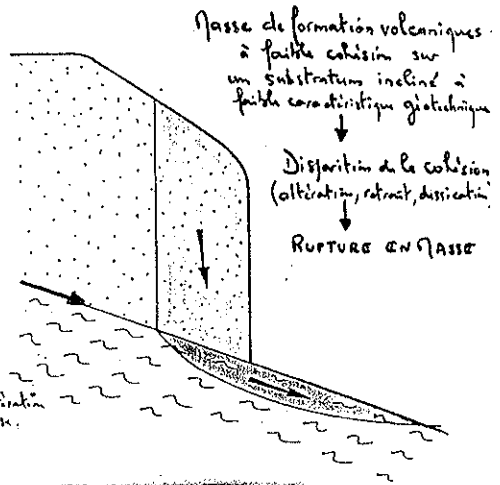 Masse de formation volcaniques
à faible cohésion sur
un substratum incliné à
faible caractéristique géotechnique
Disparition de la cohésion
(altération, retrait, dissication)
RUPTURE EN MASSE